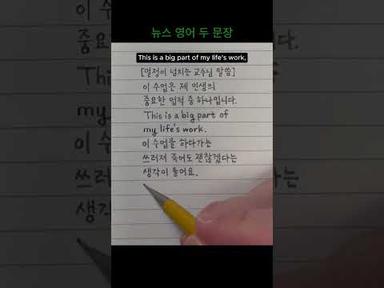 뉴스 영어 두 문장
This is a big part of my life's work,
[열정이 넘치는 교수님 말씀]
이 수업은 제 인생의
중요한 업적 중 하나입니다.
This is a big part of
my life's work.
이 수업을 하다가는
쓰러져 죽어도 괜찮겠다는
생각이 들어요.